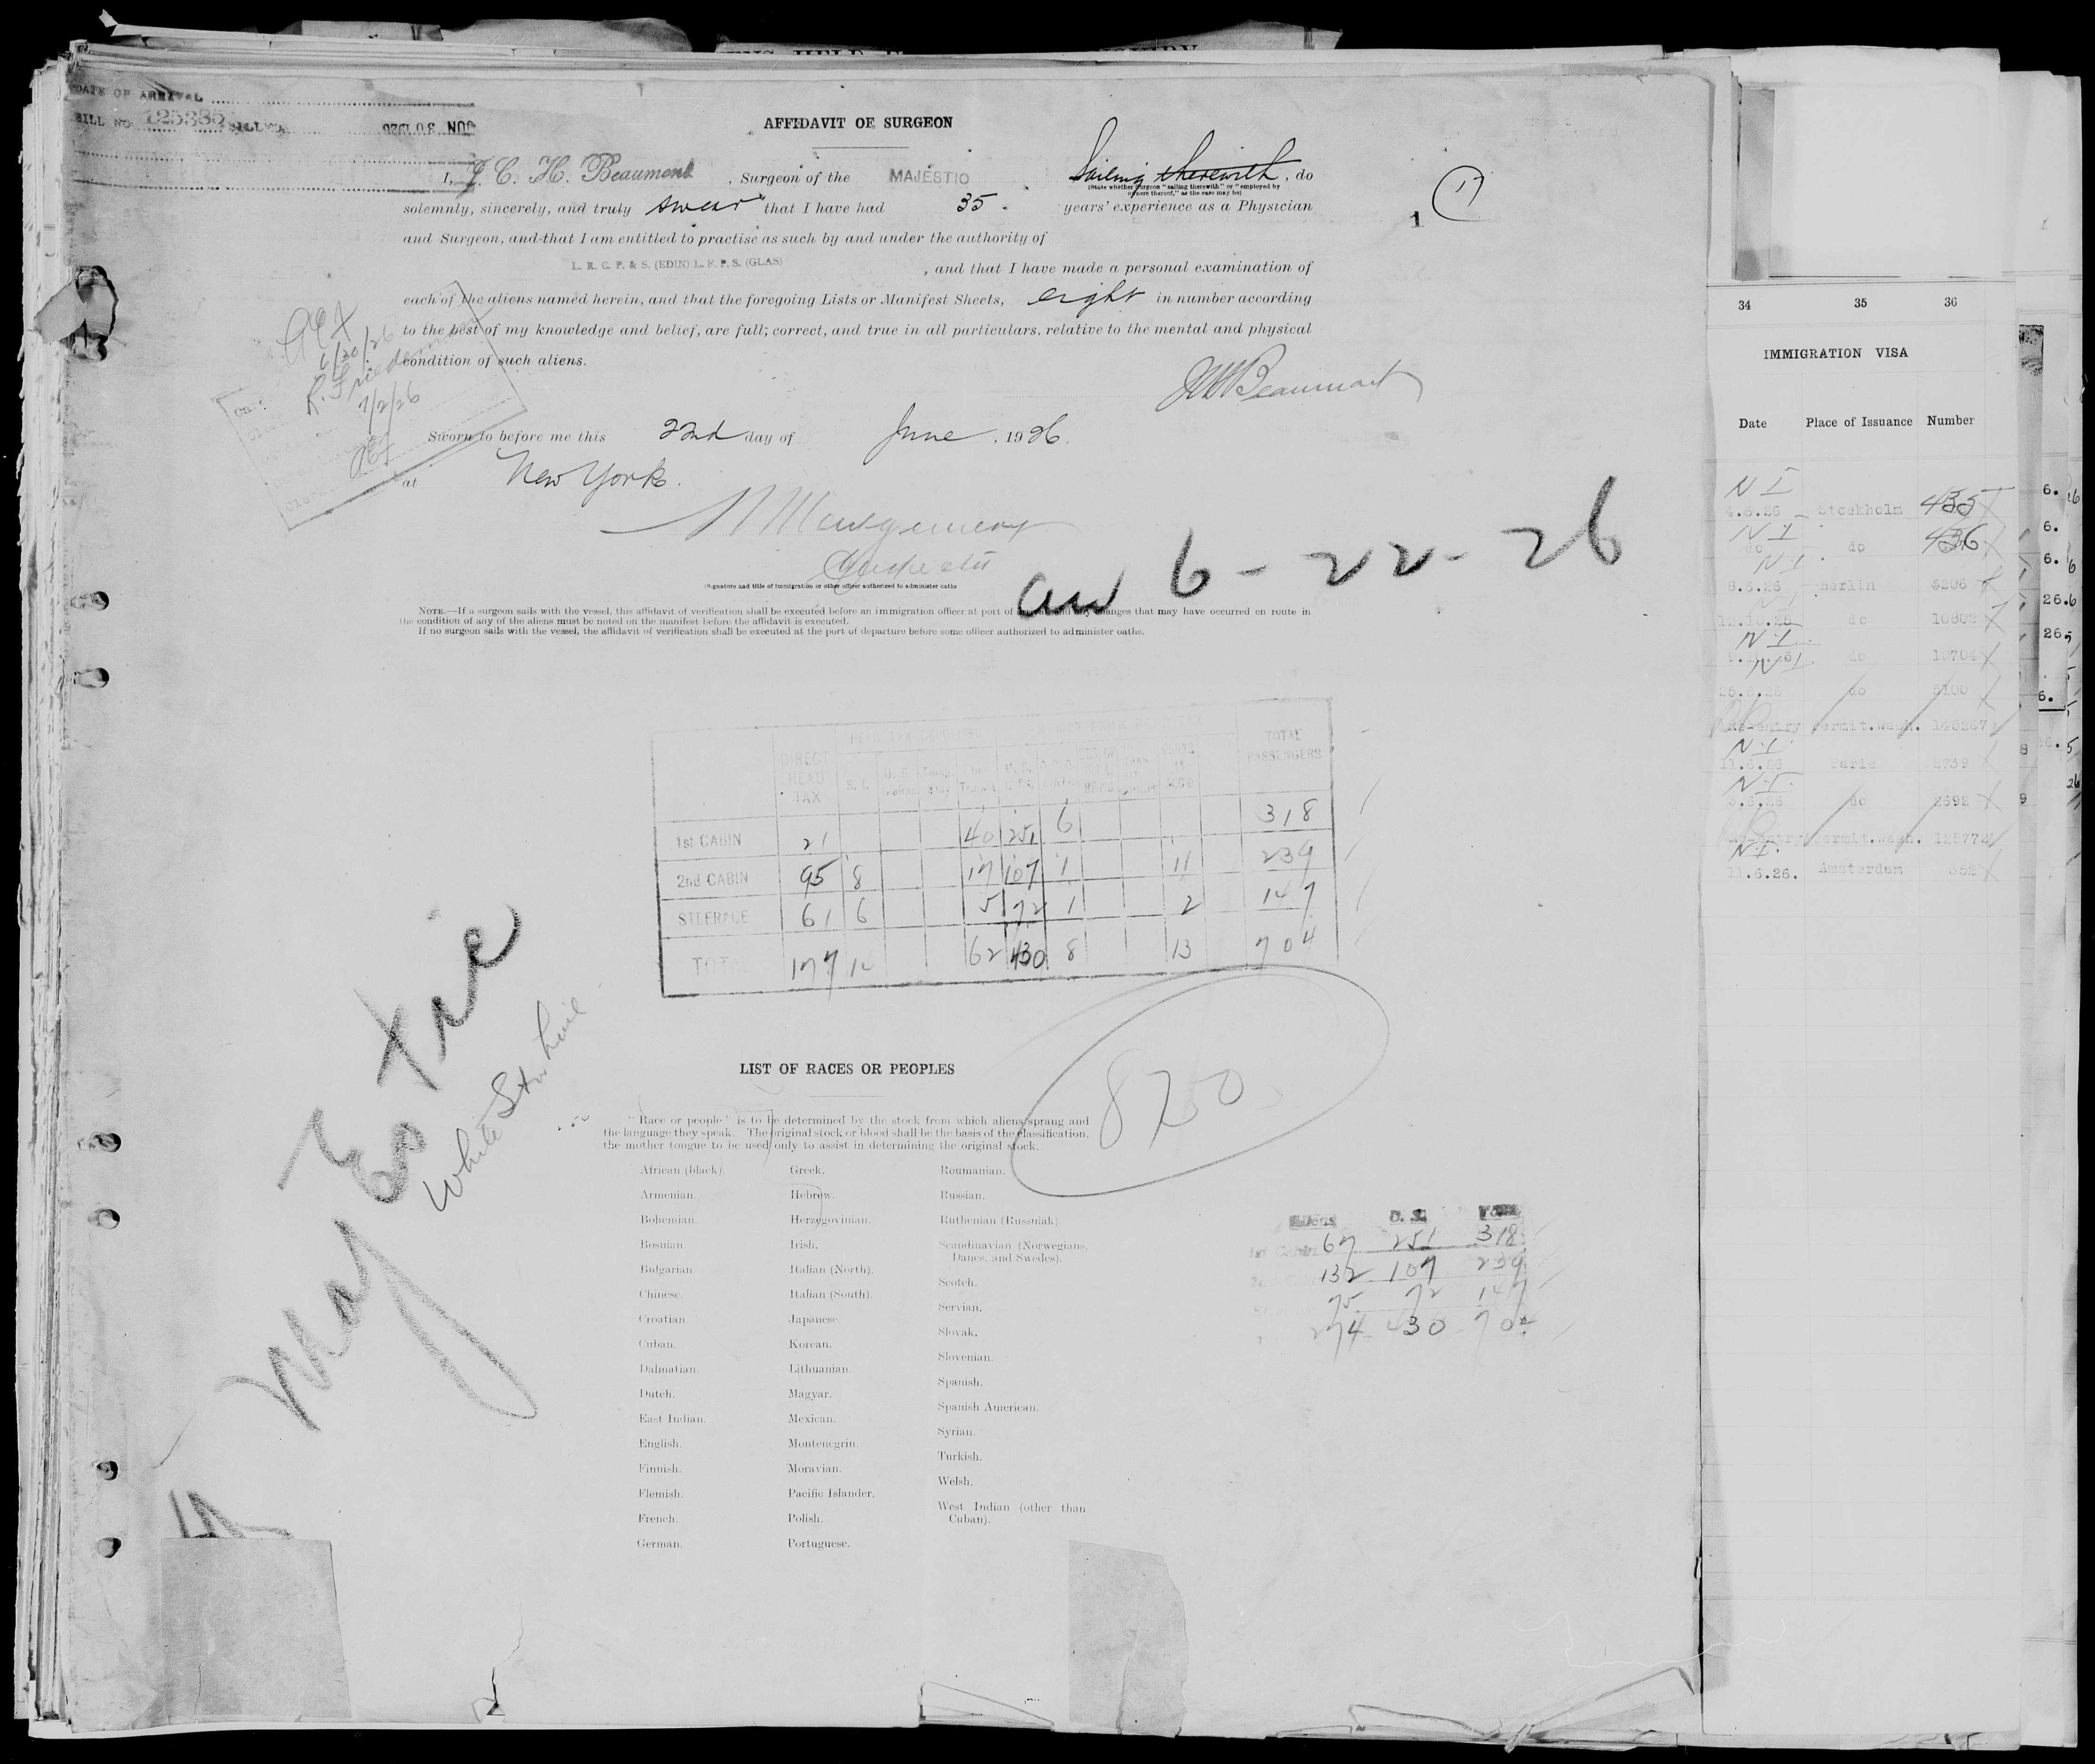 DATE OF ARRIVAL
BILL NO. 125385
JUN 30 1926
AFFIDAVIT OF SURGEON
I, J. C. H. Beaumont, Surgeon of the MAJESTIC Sailing therewith, do
(State whether Surgeon "sailing therewith" or "employed by
owners thereof," as the case may be)
solemnly, sincerely, and truly swear that I have had 35. years' experience as a Physician
and Surgeon, and that I am entitled to practise as such by and under the authority of
L. R. C. P. & S. (EDIN) L. F. P. S. (GLAS) , and that I have made a personal examination of
each of the aliens named herein, and that the foregoing Lists or Manifest Sheets, eight in number according
to the best of my knowledge and belief, are full, correct, and true in all particulars, relative to the mental and physical
condition of such aliens.
1
6/30/26
R. Friedman
7/2/26
JCHBeaumont
Sworn to before me this 22nd day of June, 1926.
at New York.
Montgomery
Inspector
(Signature and title of immigration or other officer authorized to administer oaths
6-22-26
NOTE.—If a surgeon sails with the vessel, this affidavit of verification shall be executed before an immigration officer at port of arrival, and any changes that may have occurred en route in
the condition of any of the aliens must be noted on the manifest before the affidavit is executed.
If no surgeon sails with the vessel, the affidavit of verification shall be executed at the port of departure before some officer authorized to administer oaths.
DIRECT HEAD TAX S. I. TOTAL PASSENGERS
1st CABIN 21 40 251 6 318
2nd CABIN 95 8 17 107 1 11 239
STEERAGE 61 6 5 72 1 2 147
TOTAL 177 14 62 430 8 13 704
Majestic
White Star Line
8750
LIST OF RACES OR PEOPLES
"Race or people" is to be determined by the stock from which aliens sprang and
the language they speak. The original stock or blood shall be the basis of the classification,
the mother tongue to be used only to assist in determining the original stock.
African (black)
Armenian.
Bohemian.
Bosnian.
Bulgarian.
Chinese.
Croatian.
Cuban.
Dalmatian.
Dutch.
East Indian.
English.
Finnish.
Flemish.
French.
German.
Greek.
Hebrew.
Herzegovinian.
Irish.
Italian (North).
Italian (South).
Japanese.
Korean.
Lithuanian.
Magyar.
Mexican.
Montenegrin.
Moravian.
Pacific Islander.
Polish.
Portuguese.
Roumanian.
Russian.
Ruthenian (Russniak).
Scandinavian (Norwegians,
Danes, and Swedes).
Scotch.
Servian.
Slovak.
Slovenian.
Spanish.
Spanish American.
Syrian.
Turkish.
Welsh.
West Indian (other than
Cuban).
Aliens U. S. Total
1st Cabin 67 251 318
132 107 239
75 72 147
274 430 704
34 35 36
IMMIGRATION VISA
Date Place of Issuance Number
N I
4.6.26 Stockholm 435
N I
do do 436
N I
8.6.26 Berlin 5206
do 10802
N I
do 10704
N I
do 5100
Re-entry Permit.Wash. 146267
N I.
11.6.26 Paris 2739
N I.
5.6.26 do 2692
Re-entry Permit.Wash. 125772
N I.
11.6.26. Amsterdam 352